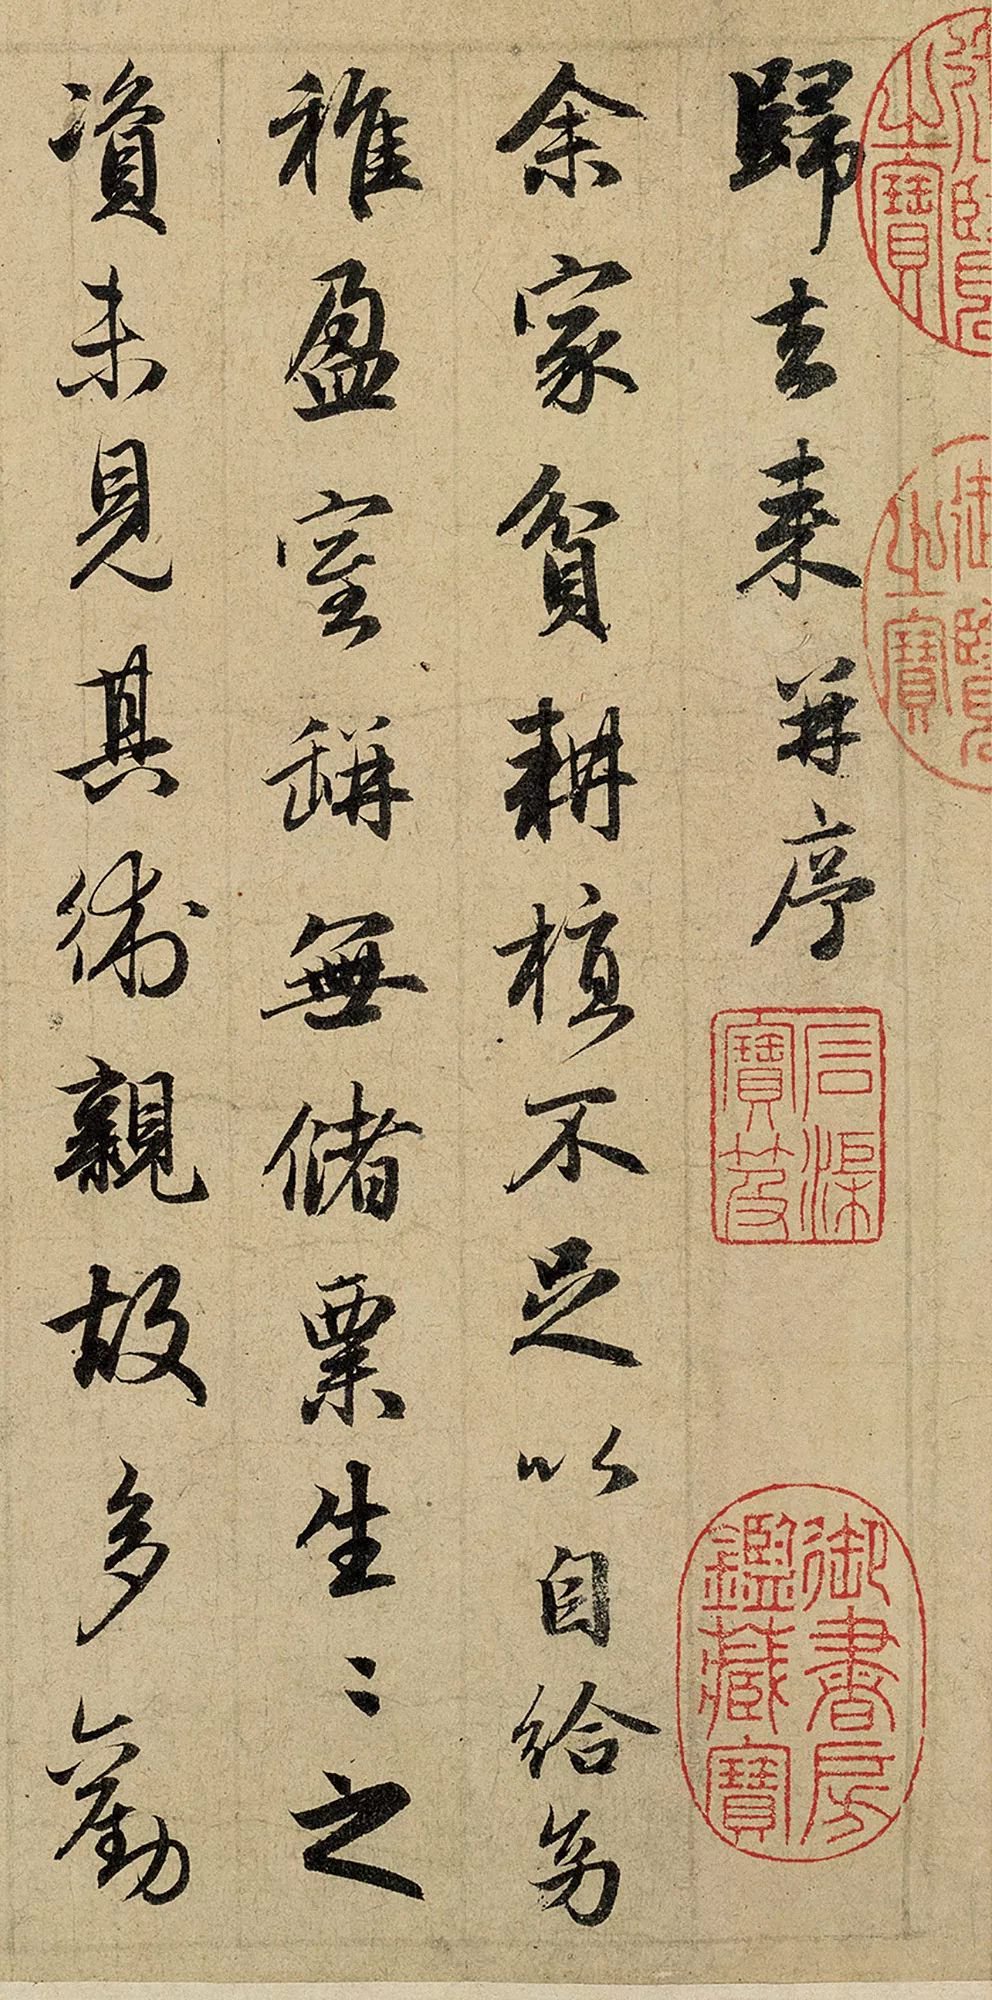 御覽之寶
歸去来并序
石渠寶笈
御書房鑑藏寶
余家貧耕植不足以自給幼
稚盈室缾無儲粟生〻之
資未見其術親故多勸